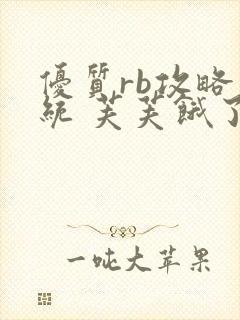 優質rb攻略
統 芙芙餓了
一吨大苹果